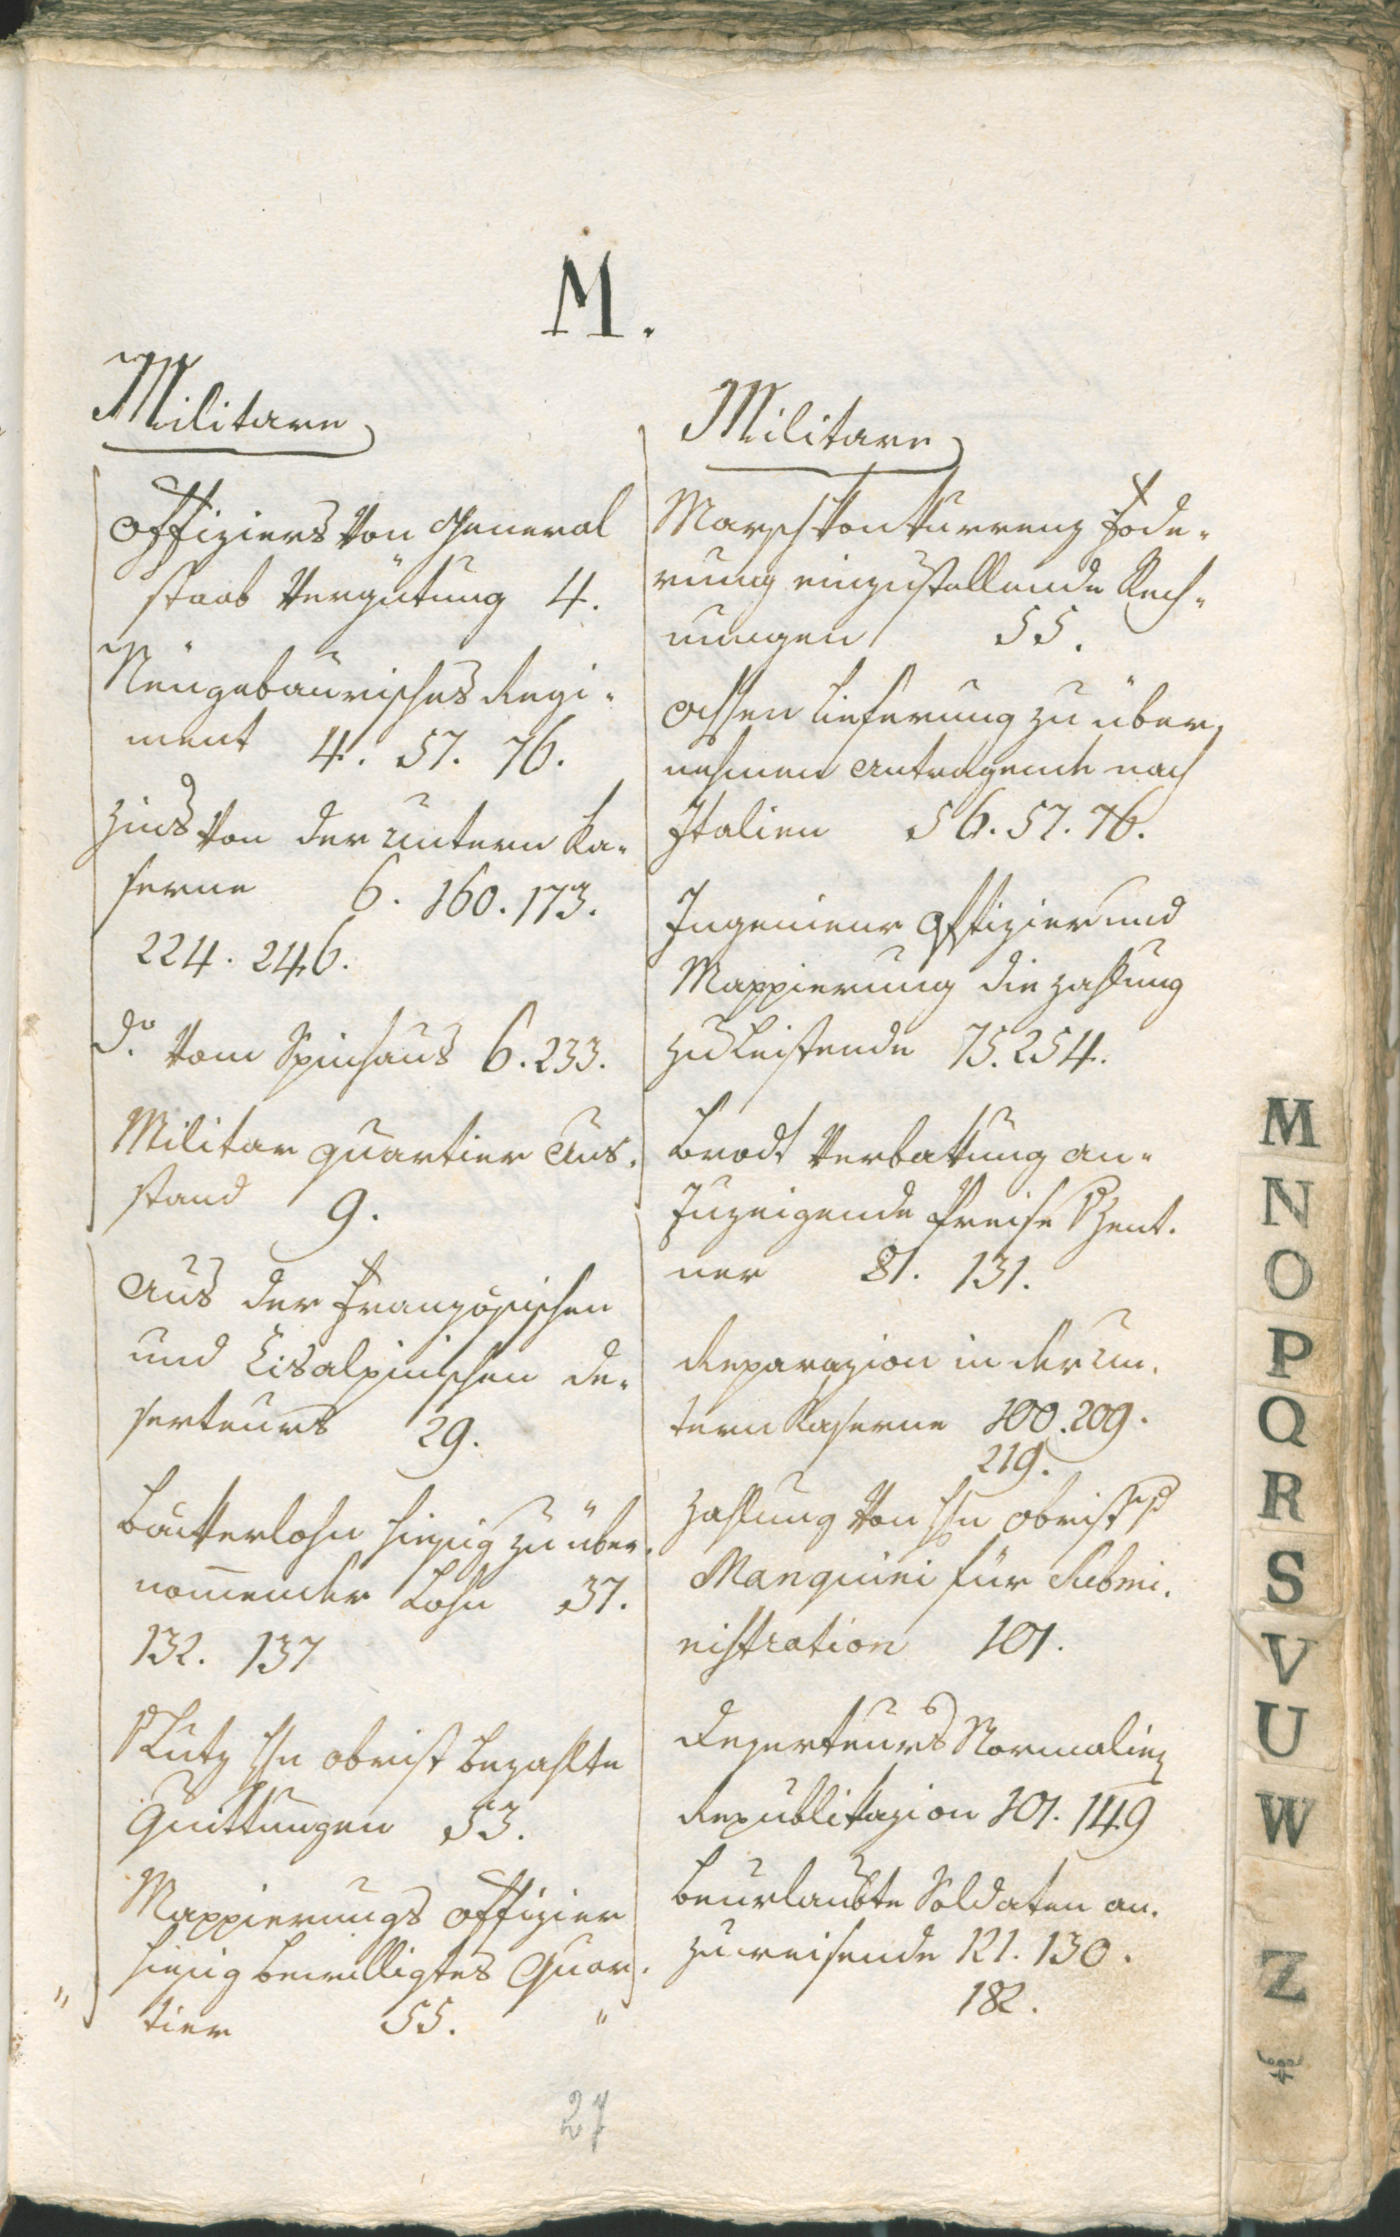 M.
Militare
Offiziers von General
staab Vergütung 4.
Neugebaurisches Regi-
ment 4. 57. 76.
Zins von der untern Ka-
serne 6. 160. 173.
224. 246.
do vom Spinhaus 6. 233.
Militar quartier Aus-
stand 9.
Aus der Französischen
und Cisalpinischen De-
serteurs 29.
hiesig zu über-
nom̅ender Lohn 37.
132. 137
Hrn Obrist bezahlte
Quittungen 53.
Mappierungs Offizier
hiesig bewilligtes Quar-
tier 55.
Militare
Marschkonkurrenz Fode-
rung einzustellende Rech-
nungen 55.
Ochsen Lieferung zu über-
nehmen antragende nach
Italien 56. 57. 76.
Ingenieur Offizier und
Mappierung die Zahlung
zu Leistende 75. 254.
Brodt Verbakung an-
zuzeigende Preise Zent-
ner 81. 131.
Reparazion in der un-
tern Kaserne 100. 209.
219.
Zahlung von Hrn Obrist
Manquini für Submi-
nistration 101.
Dezerteurs Normalien
Republikazion 101. 149
Beurlaubte Soldaten an-
zuweisende 121. 130.
182.
27
M
N
O
P
Q
R
S
V
U
W
Z